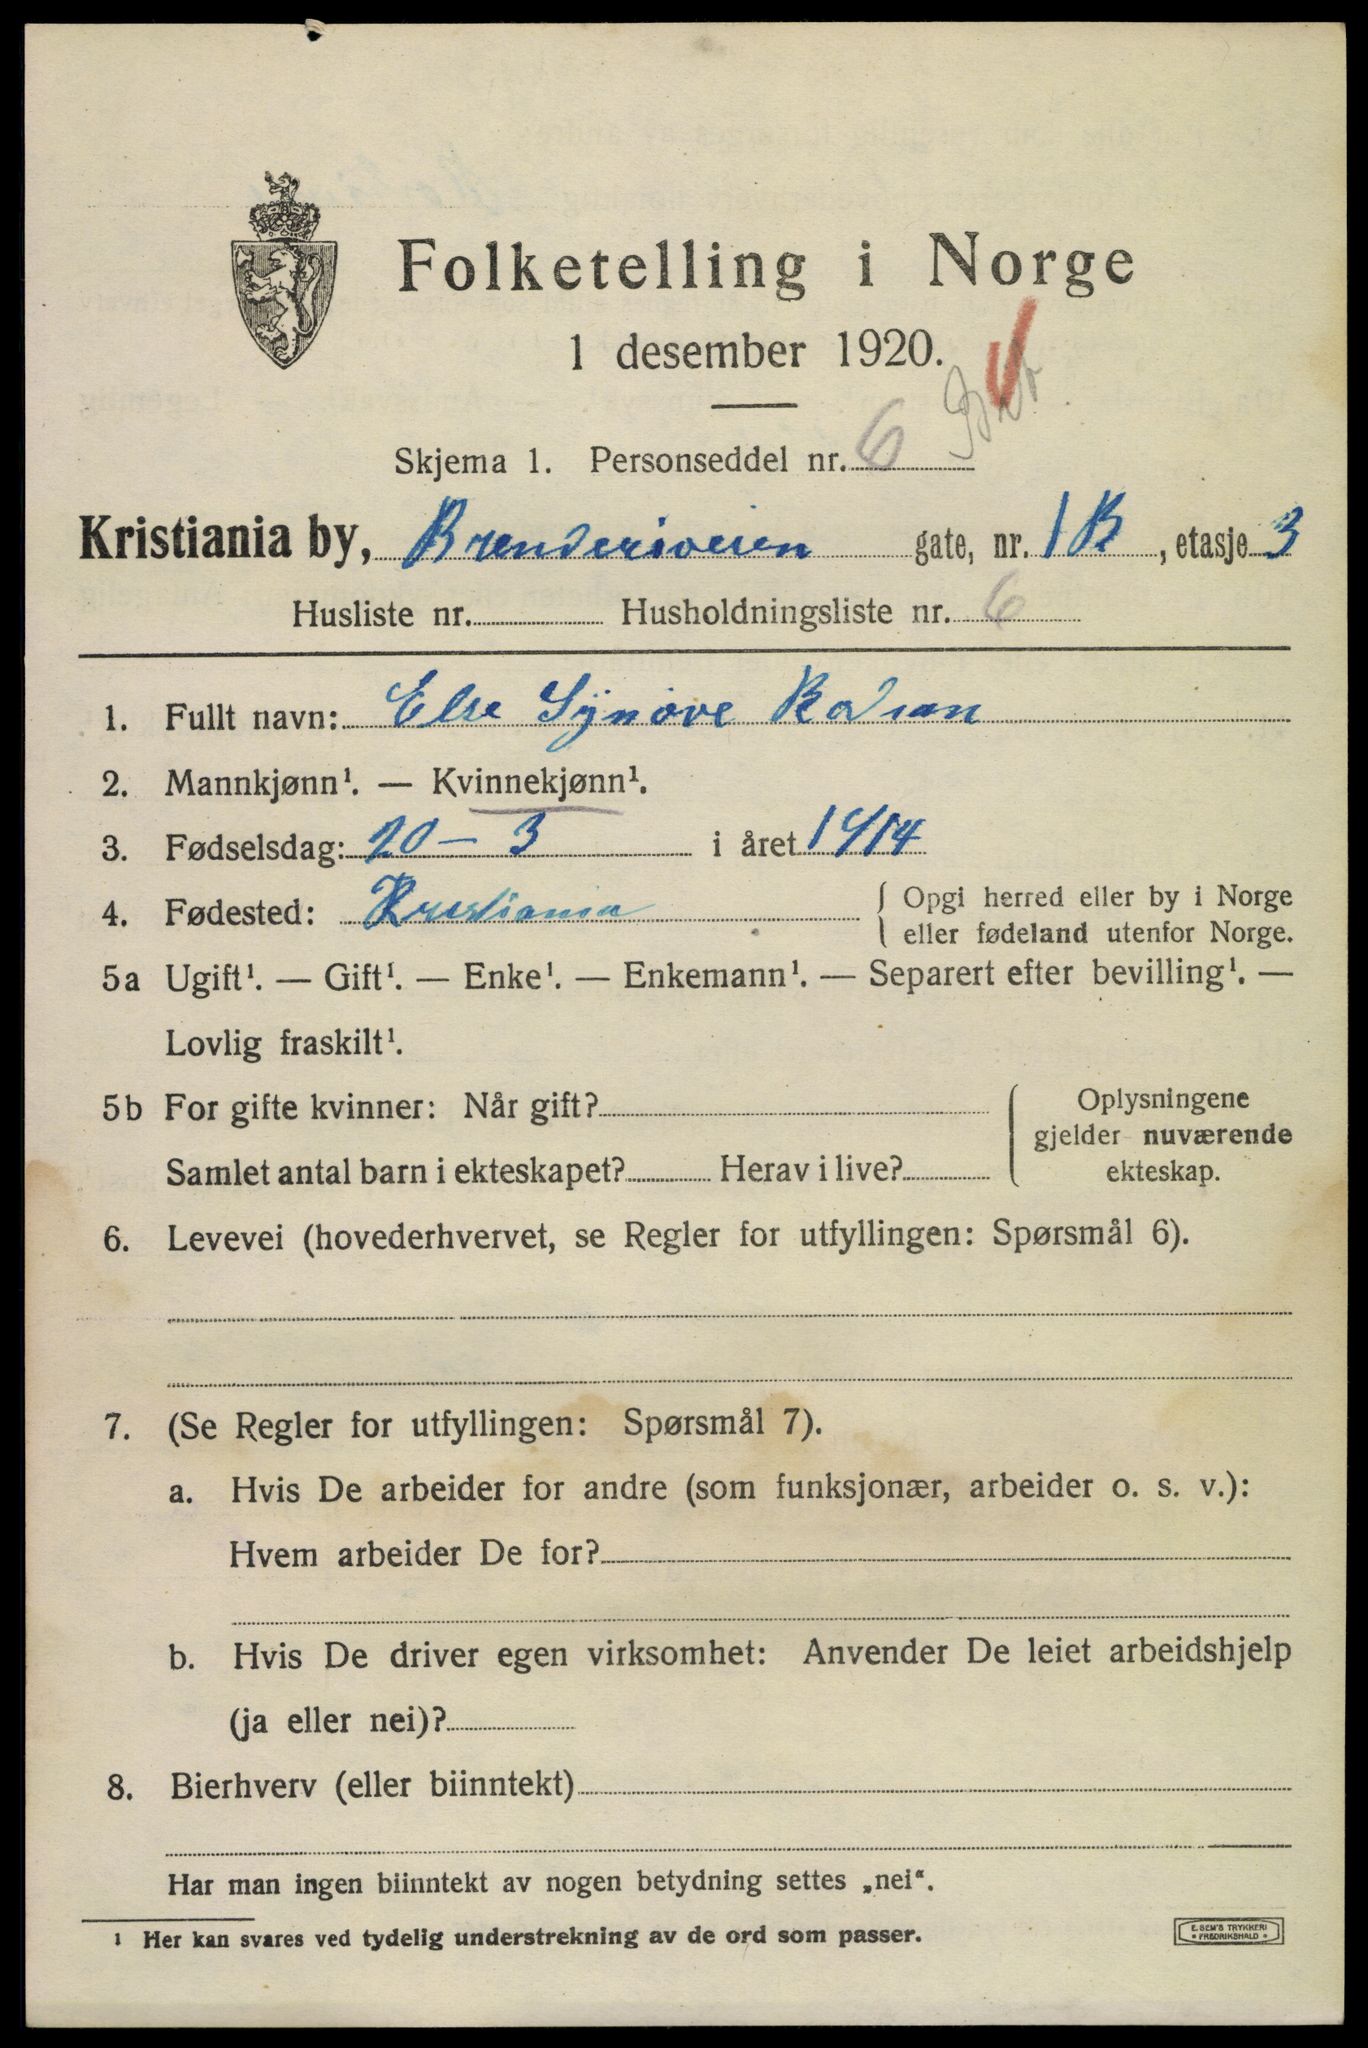 Folketelling i Norge
1 desember 1920.
Skjema 1. Personseddel nr. 6
Kristiania by, Brenderiveien gate, nr. 1B, etasje 3
Husliste nr. Husholdningsliste nr. 6
1. Fullt navn: Else Synøve
2. Mannkjønn¹. — Kvinnekjønn¹.
3. Fødselsdag: 20 – 3 i året 1914
4. Fødested: Kristiania { Opgi herred eller by i Norge
eller fødeland utenfor Norge.
5a Ugift¹. — Gift¹. — Enke¹. — Enkemann¹. — Separert efter bevilling¹. —
Lovlig fraskilt¹.
5b For gifte kvinner: Når gift?
Samlet antal barn i ekteskapet? Herav i live?
Oplysningene
gjelder nuværende
ekteskap.
6. Levevei (hovederhvervet, se Regler for utfyllingen: Spørsmål 6).
7. (Se Regler for utfyllingen: Spørsmål 7).
a. Hvis De arbeider for andre (som funksjonær, arbeider o. s. v.):
Hvem arbeider De for?
b. Hvis De driver egen virksomhet: Anvender De leiet arbeidshjelp
(ja eller nei)?
8. Bierhverv (eller biinntekt)
Har man ingen biinntekt av nogen betydning settes „nei“.
¹ Her kan svares ved tydelig understrekning av de ord som passer.
E. SEM'S TRYKKERI
• FREDRIKSHALD •